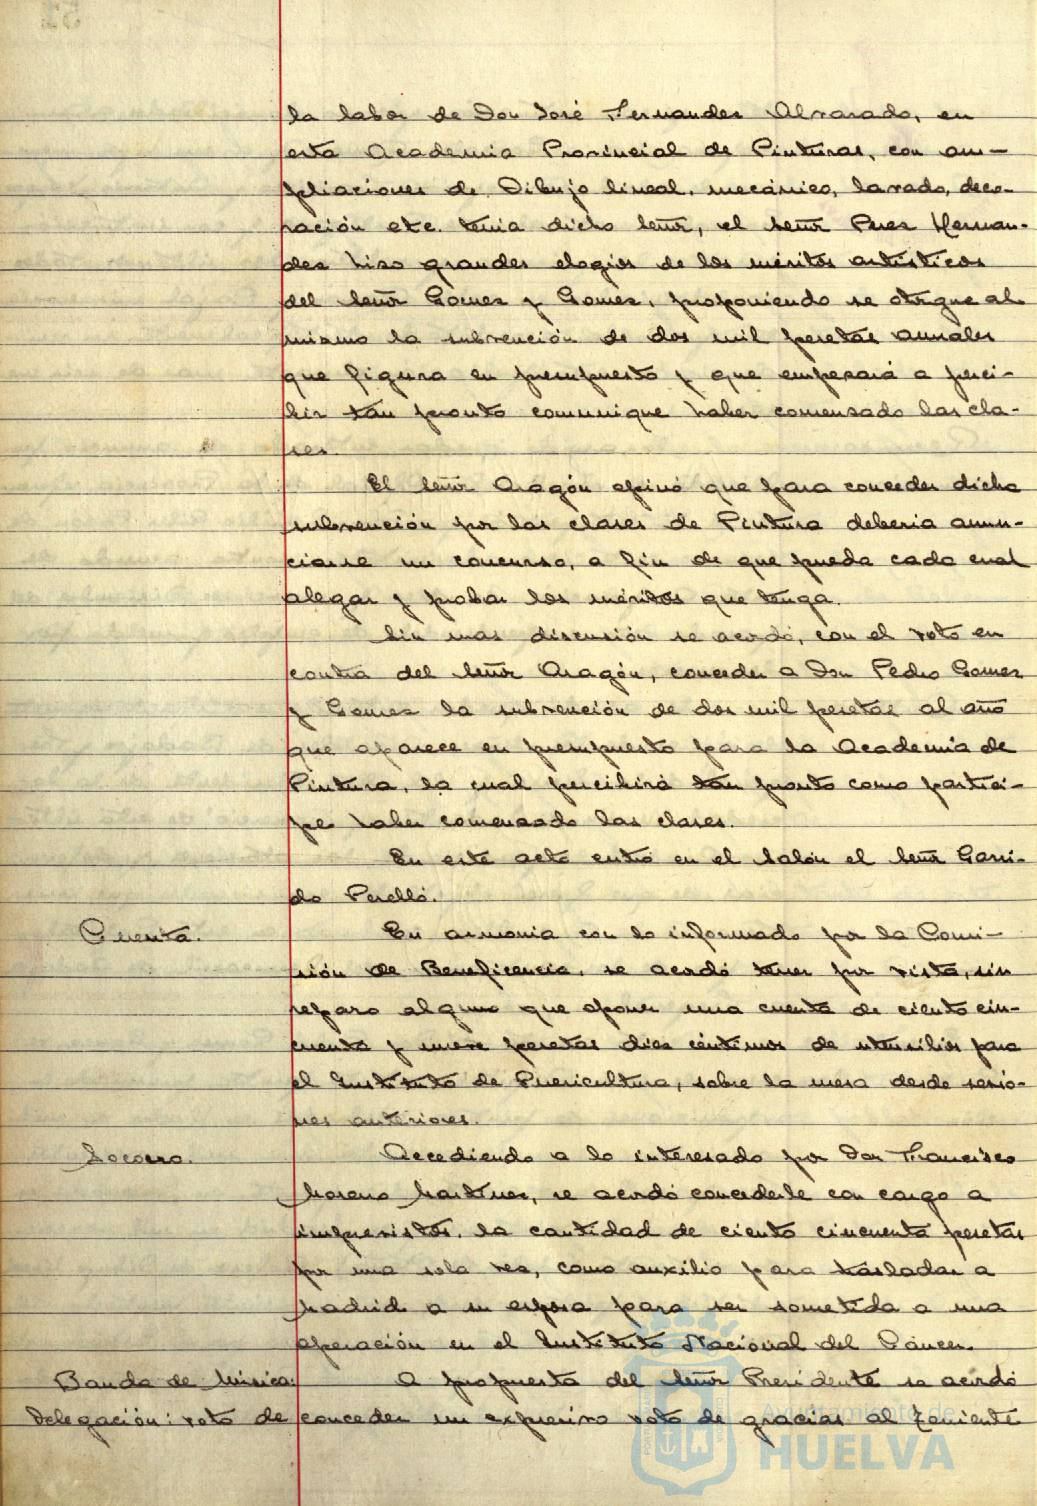 la labor de Don José Fernandez Alvarado, en
esta Academia Provincial de Pinturas, con am-
pliaciones de Dibujo lineal, mecánico, lavado, deco-
ración etc. tenia dicho Señor, el Señor Perez Hernan-
dez hizo grandes elogios de los méritos artísticos
del Señor Gomez y Gomez, proponiendo se otorgue al
mismo la subvención de dos mil pesetas anuales
que figura en presupuesto y que empezará a perci-
bir tan pronto comunique haber comenzado las cla-
ses.
El Señor Aragón opinó que para conceder dicha
subvención por las clases de Pintura deberia anun-
ciarse un concurso, a fin de que pueda cada cual
alegar y probar los méritos que tenga.
Sin mas discusión se acordó, con el voto en
contra del Señor Aragón, conceder a Don Pedro Gomez
y Gomez la subvención de dos mil pesetas al año
que aparece en presupuesto para la Academia de
Pintura, la cual percibirá tan pronto como partici-
pe haber comenzado las clases.
En este acto entró en el Salón el Señor Garri-
do Perelló.
Cuenta.
En armonia con lo informado por la Comi-
sión de Beneficencia, se acordó tener por vista, sin
reparo alguno que oponer una cuenta de ciento cin-
cuenta y nueve pesetas diez céntimos de utensilios para
el Instituto de Puericultura, sobre la mesa desde sesio-
nes anteriores.
Socorro.
Accediendo a lo interesado por Don Francisco
Moreno Martinez, se acordó concederle con cargo a
imprevistos, la cantidad de ciento cincuenta pesetas
por una sola vez, como auxilio para trasladar a
Madrid a su esposa para ser sometida a una
operación en el Instituto Nacional del Cáncer.
Banda de Música:
A propuesta del Señor Presidente se acordó
Delegación: voto de
conceder un expresivo voto de gracias al Teniente
Ayuntamiento de
HUELVA